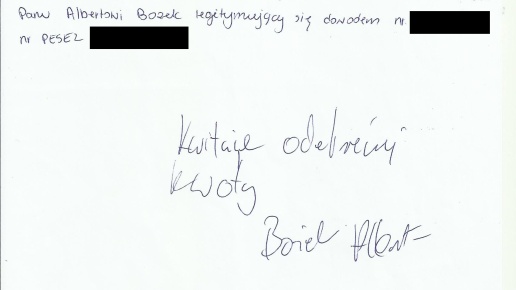 Panu Albertowi Bosek legitymujący się dowodem nr.
nr PESEL
Kwituję odebrany
kwoty
Bosek Albert